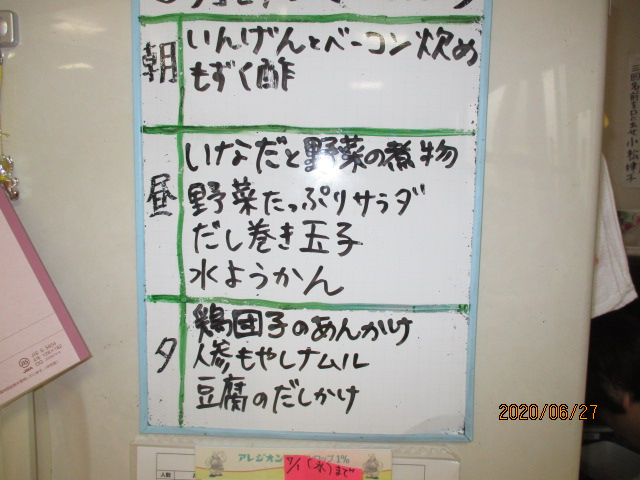 朝
いんげんとベーコン炒め
もずく酢
昼
いなだと野菜の煮物
野菜たっぷりサラダ
だし巻き玉子
水ようかん
夕
鶏団子のあんかけ
人参もやしナムル
豆腐のだしかけ
2020/06/27
アレジオン
1%
7/1(水)まで
人数